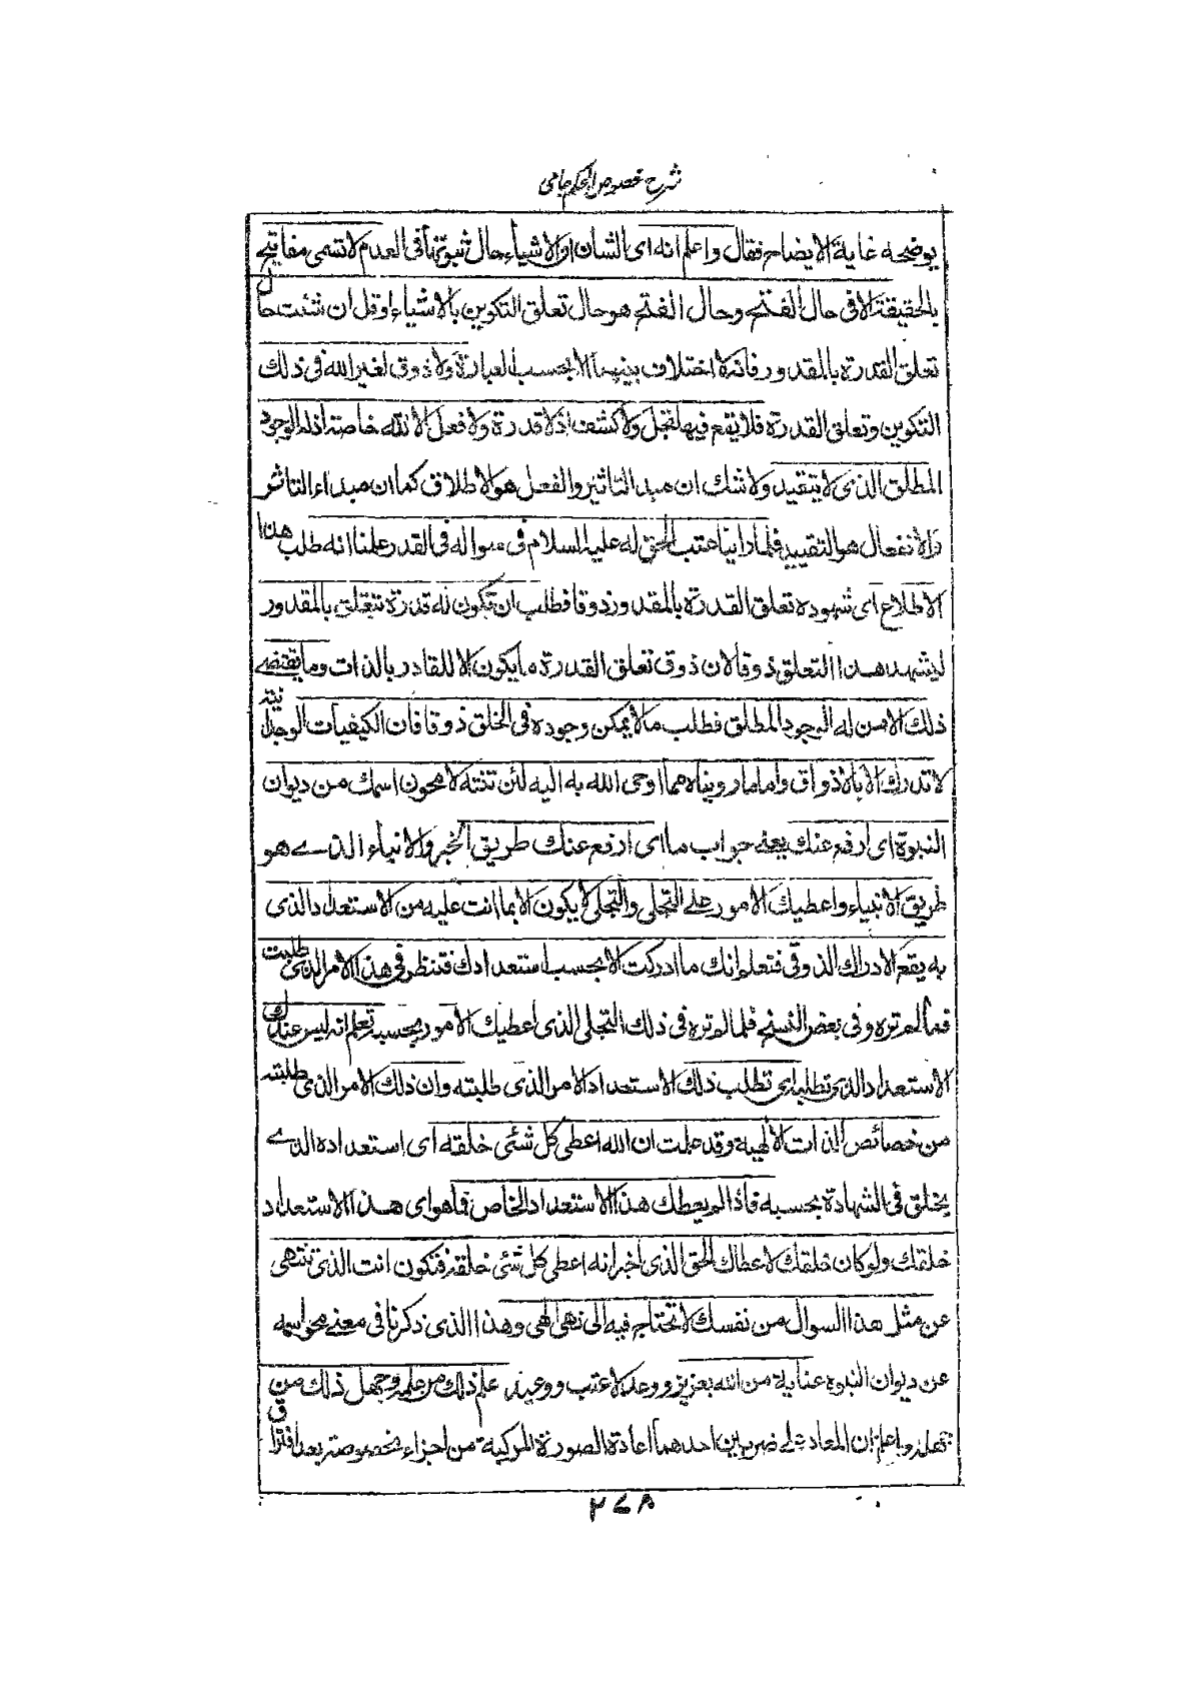 شرح فصوص الحكم جامى
يوضحه غاية الايضاح فقال واعلم انه اى الشان او الاشياء حال ثبوتها فى العدم لا تسمى مفاتيح
بالحقيقة الا فى حال الفتح وحال الفتح هو حال تعلق التكوين بالاشياء او قل ان شئت حال
تعلق القدرة بالمقدور فانه لا اختلاف بينهما الا بحسب العبارة ولا ذوق لغير الله فى ذلك
التكوين وتعلق القدرة فلا يقع فيها تجل ولا كشف اذ لا قدرة ولا فعل الا لله خاصة اذ له الوجود
المطلق الذى لا يتقيد ولا شك ان مبدا التاثير والفعل هو الاطلاق كما ان مبداء التاثر
والانفعال هو التقييد فلما راينا عتب الحق له عليه السلام فى سواله فى القدر علمنا انه طلب هذا
الاطلاع اى شهوده تعلق القدرة بالمقدور ذوقا فطلب ان تكون له قدرة تتعلق بالمقدور
ليشهد هذا التعلق ذوقا لان ذوق تعلق القدرة ما يكون الا للقادر بالذات وما يقتضے
ذلك الا من له الوجود المطلق فطلب ما لا يمكن وجوده فى الخلق ذوقا فان الكيفيات الوجدانية
لا تدرك الا بالاذواق واما ما رويناه مما اوحى الله به اليه لئن لم تنته لامحون اسمك من ديوان
النبوة اى ارفع عنك يعنے جواب ما اى ارفع عنك طريق الخبر والانباء الذے هو
طريق الانبياء واعطيك الامور علے التجلى والتجلى لا يكون الا بما انت عليه من الاستعداد الذى
به يقع الادراك الذوقى فتعلم انك ما ادركت الا بحسب استعدادك فتنظر فى هذا الامر الذى طلبت
فما لم تره وفى بعض النسخ فلما لم تره فى ذلك التجلى الذى اعطيك الامور بحسبه تعلم انه ليس عندك
الاستعداد الذى تطلبه اى تطلب ذلك الاستعداد الامر الذى طلبته وان ذلك الامر الذى طلبته
من خصائص الذات الالهية وقد علمت ان الله اعطى كل شئى خلقه اى استعداده الذے
يخلق فى الشهادة بحسبه فاذا لم يعطك هذا الاستعداد الخاص فما هو اى هذا الاستعداد
خلقك ولو كان خلقك لاعطاك الحق الذى اخبر انه اعطى كل شئى خلقه فتكون انت الذى تنتهى
عن مثل هذا السوال من نفسك لا تحتاج فيه الى نهى الهى وهذا الذى ذكرنا فى معنے محو اسمه
عن ديوان النبوه عناية من الله بعزيز ووعد لا عتب ووعيد علم ذلك من علمه وجهل ذلك من
جهله واعلم ان المعاد علے ضربين احدهما اعادة الصورة المركبة من اجزاء مخصوصة بعد افتراق
٢٧٨